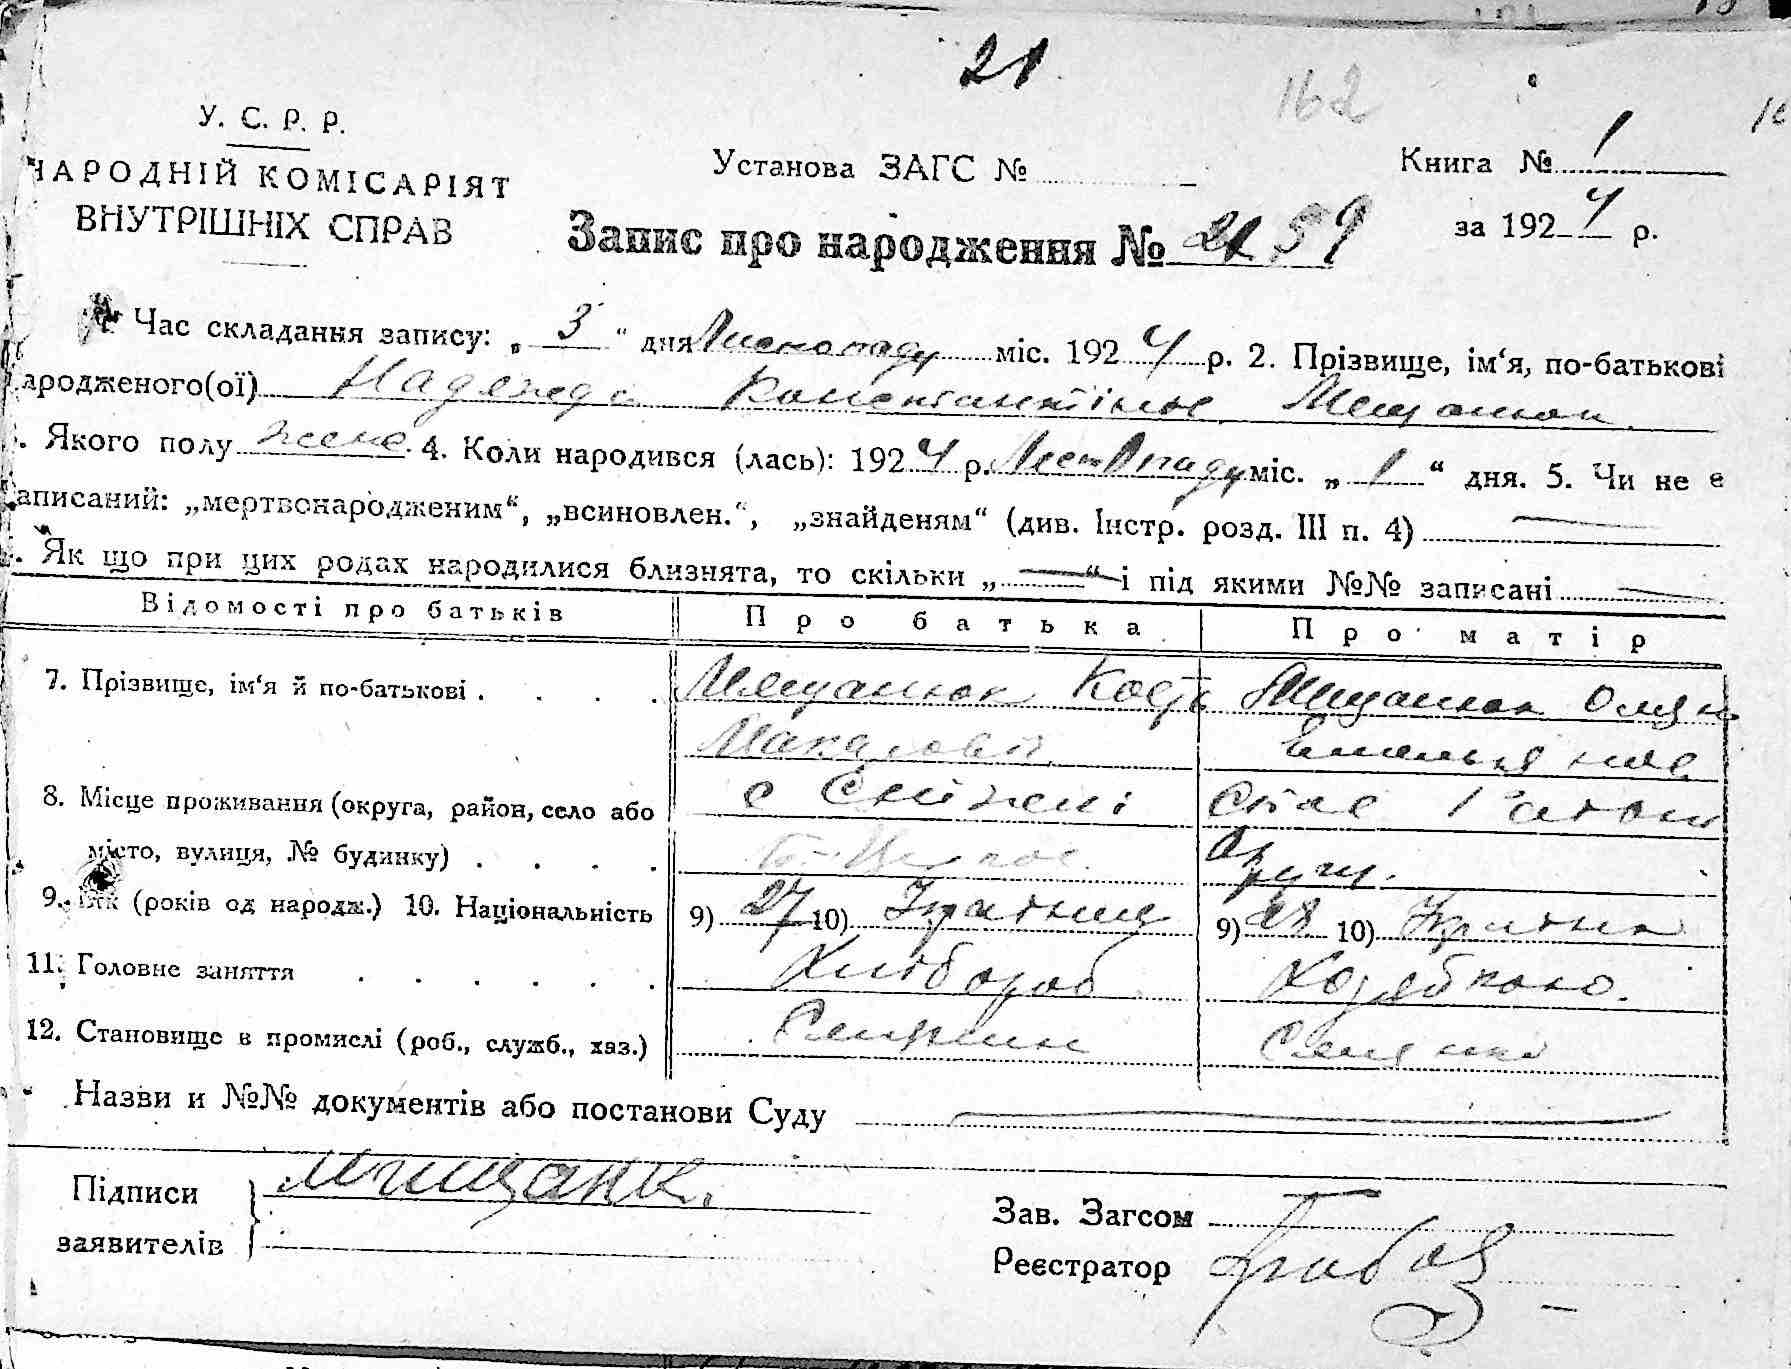 21
162
У. С. Р. Р.
НАРОДНІЙ КОМІСАРІЯТ
ВНУТРІШНІХ СПРАВ
Установа ЗАГС №
Книга № 1
за 1924 р.
Запис про народження № 59
Час складання запису: „ 3 “ дня Листопаду міс. 1924 р. 2. Прізвище, ім‘я, по-батькові
ародженого(ої) Надежда Константинівна Мещанюк
. Якого полу жене 4. Коли народився (лась): 1924 р. Листопаду міс. „ 1 “ дня. 5. Чи не є
аписаний: „мертвонародженим“, „всиновлен.“, „знайденям“ (див. Інстр. розд. III п. 4)
. Як що при цих родах народилися близнята, то скільки „ — “ і під якими №№ записані —
Відомості про батьків
Про батька
Про матір
7. Прізвище, ім‘я й по-батькові . . . .
Мещанюк Кость
Мещанюк
Макарович
8. Місце проживання (округа, район, село або
с
місто, вулиця, № будинку) . . . .
9. Вік (років од народж.) 10. Національність
9) 27 10) Українец
9) 28 10) Українка
11. Головне заняття . . . . . .
Хлібороб
Хозяйкою.
12. Становище в промислі (роб., служб., хаз.)
Селянин
Селянка
Назви и №№ документів або постанови Суду
Підписи
заявителів
Зав. Загсом
Реєстратор